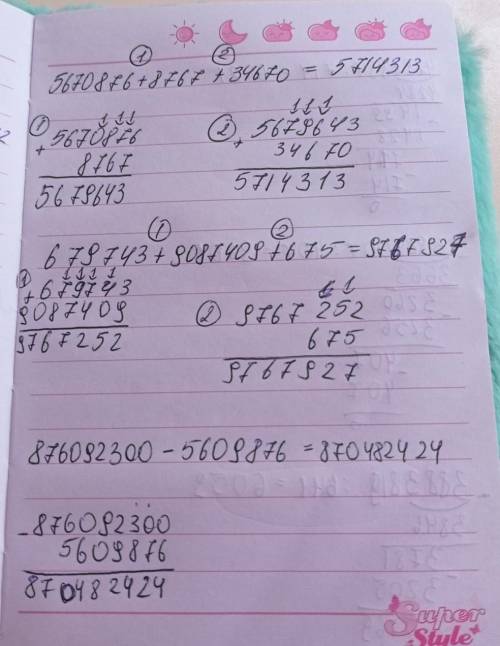 ① ②
5670876+8767+34670 = 5714313
① 111
+ 5670876
8767
5679643
② 111
+ 5679643
34670
5714313
① ②
679743+9087409+675=9767927
① 1111 1
+679743
9087409
9767252
② 11
9767252
675
9767927
876092300 - 5609876 = 870482424
- 876092300
5609876
870482424
Super
Style